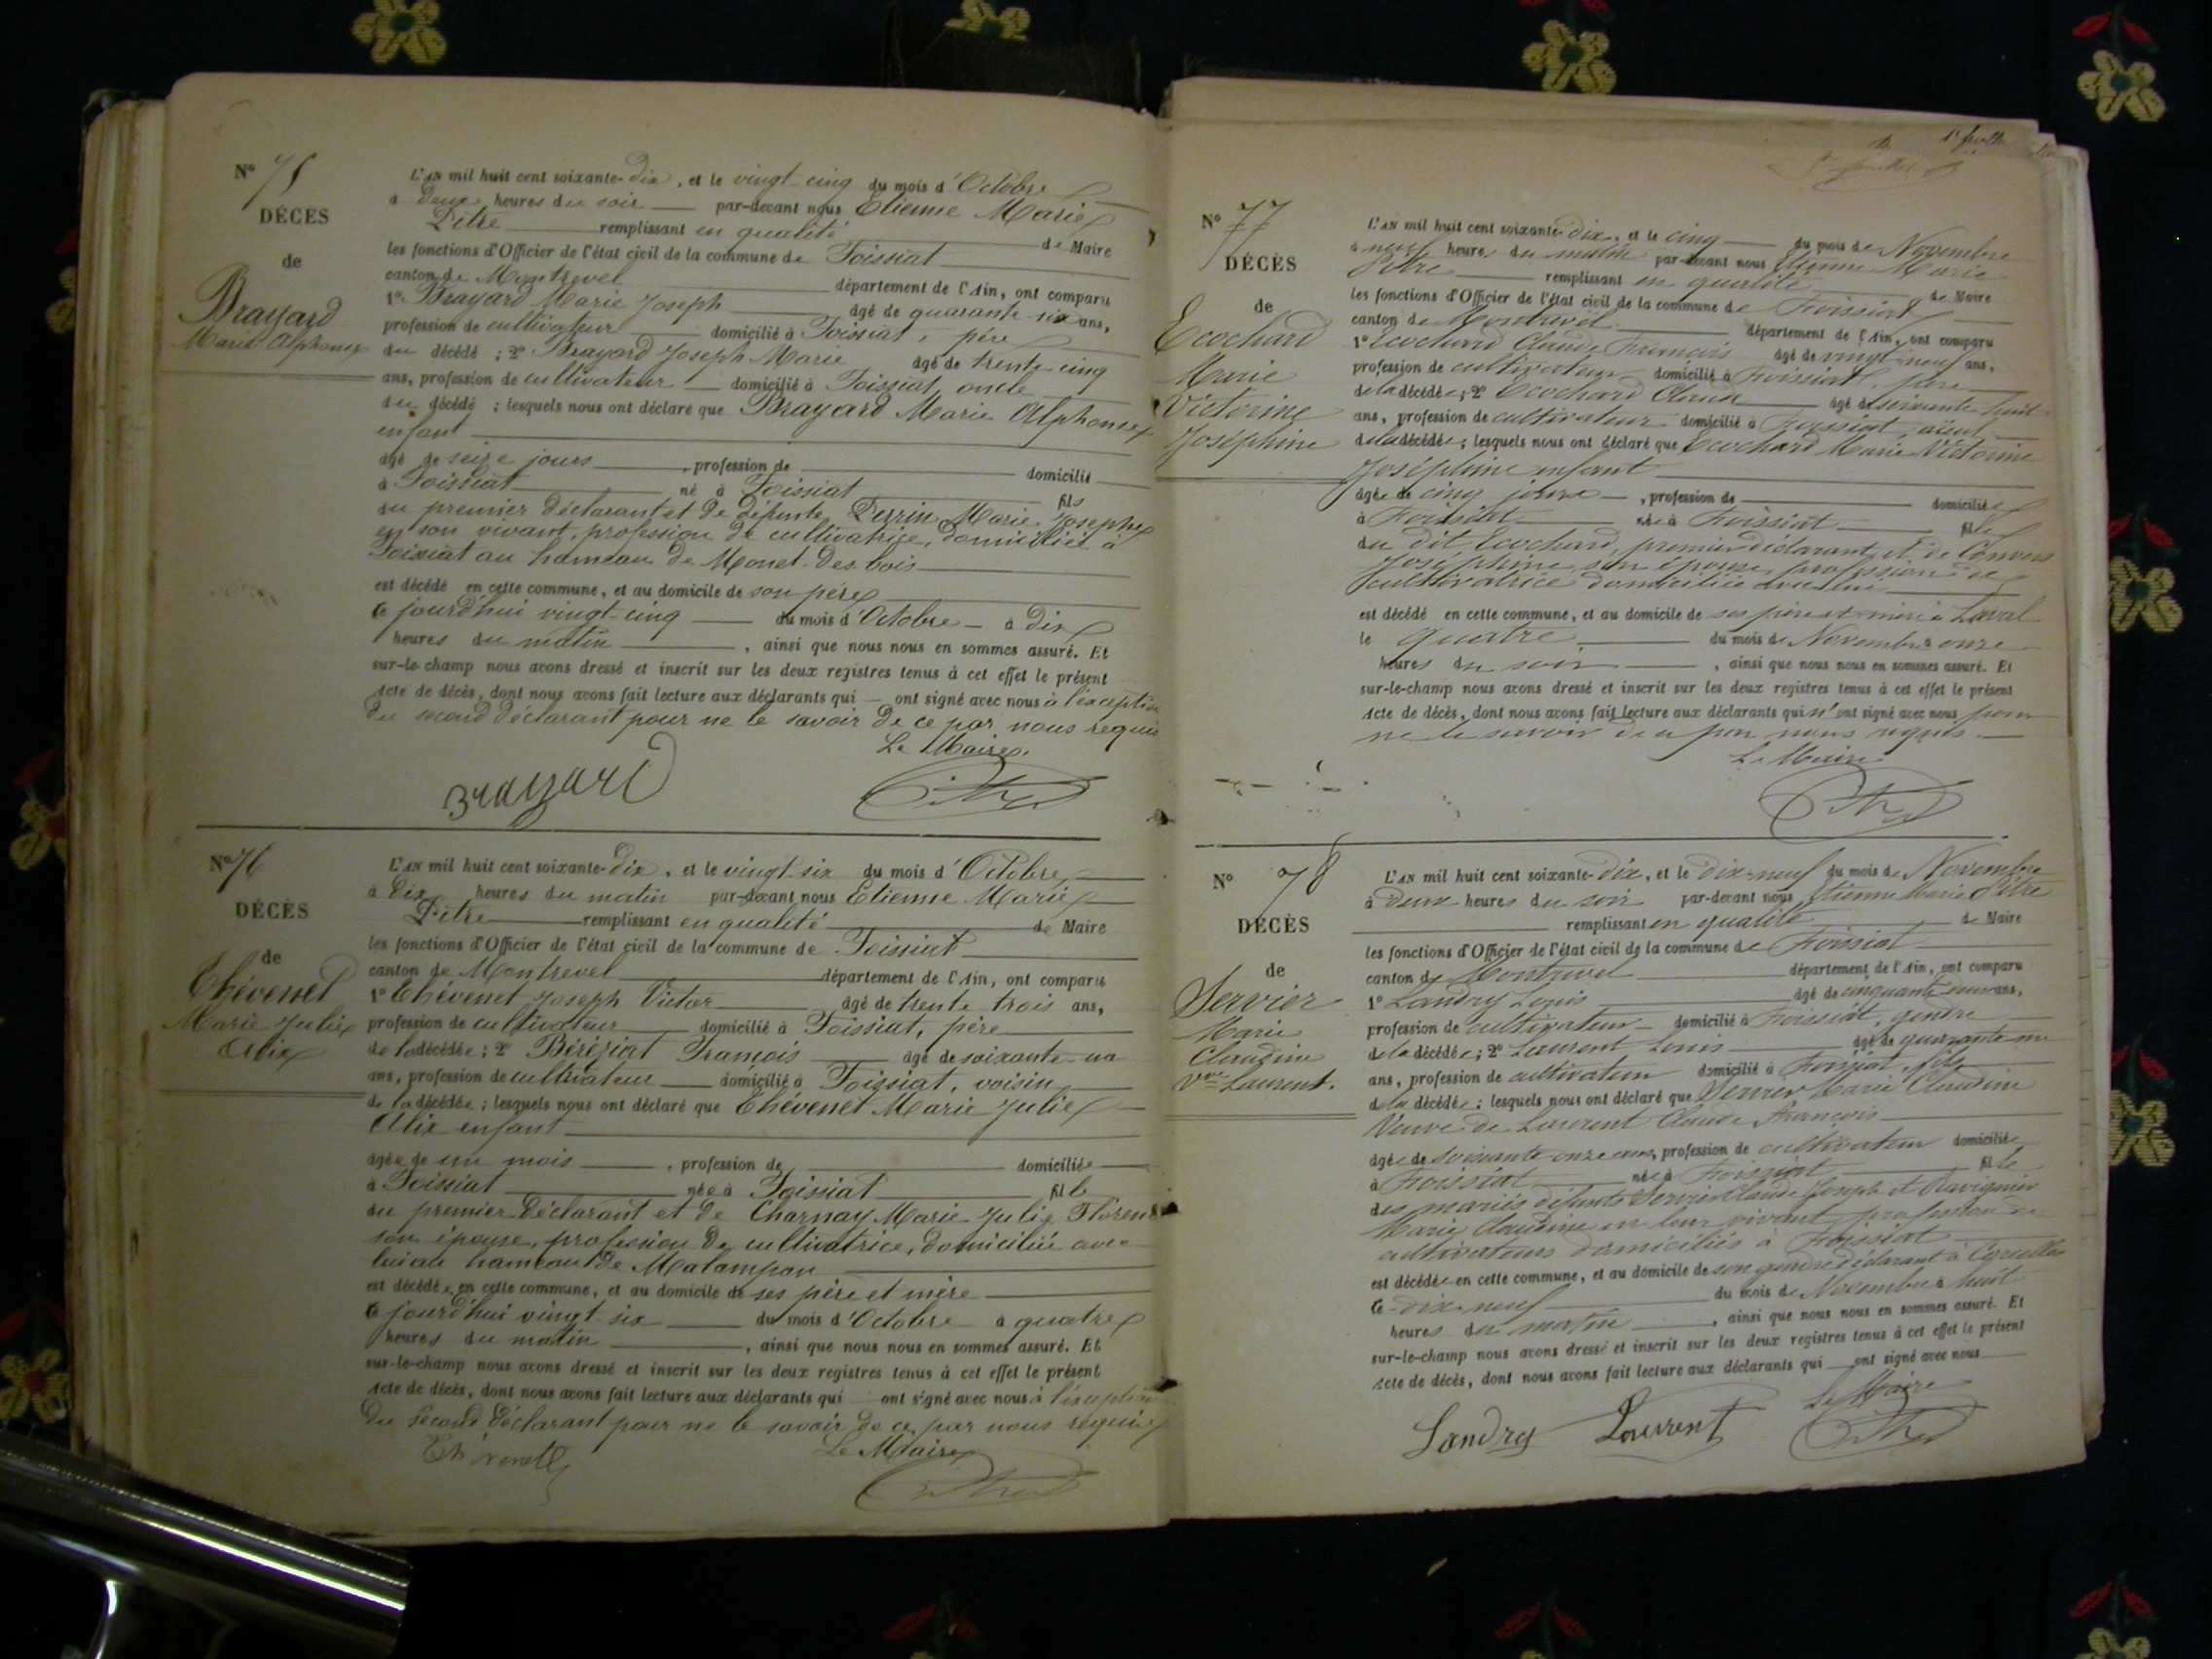 N° 75
DÉCÈS
de
Brayard
Marie Alphonse
L'AN mil huit cent soixante-dix, et le vingt-cinq du mois d'Octobre
à deux heures du soir par-devant nous Etienne Marie
Pitre remplissant en qualité de Maire
les fonctions d'Officier de l'état civil de la commune de Foissiat
canton de Montrevel département de l'Ain, ont comparu
1° Brayard Marie Joseph âgé de quarante-six ans,
profession de cultivateur domicilié à Foissiat, père
du décédé ; 2° Brayard Joseph Marie âgé de trente-cinq
ans, profession de cultivateur domicilié à Foissiat, oncle
du décédé ; lesquels nous ont déclaré que Brayard Marie Alphonse
enfant
âgé de seize jours, profession de domicilié
à Foissiat né à Foissiat fils
du premier déclarant et de défunte Perrin Marie Josephe
en son vivant, profession de cultivatrice, domiciliée à
Foissiat au hameau de Monet-des-bois
est décédé en cette commune, et au domicile de son père
ce jourd'hui vingt-cinq du mois d'Octobre à dix
heures du matin, ainsi que nous nous en sommes assuré. Et
sur-le-champ nous avons dressé et inscrit sur les deux registres tenus à cet effet le présent
Acte de décès, dont nous avons fait lecture aux déclarants qui ont signé avec nous à l'exception
du second déclarant pour ne le savoir de ce par nous requis
Le Maire
Brayard Pitre
N° 76
DÉCÈS
de
Thévenet
Marie Julie
Alix
L'AN mil huit cent soixante-dix, et le vingt-six du mois d'Octobre
à dix heures du matin par-devant nous Etienne Marie
Pitre remplissant en qualité de Maire
les fonctions d'Officier de l'état civil de la commune de Foissiat
canton de Montrevel département de l'Ain, ont comparu
1° Thévenet Joseph Victor âgé de trente trois ans,
profession de cultivateur domicilié à Foissiat, père
de la décédée ; 2° Béréziat François âgé de soixante-un
ans, profession de cultivateur domicilié à Foissiat, voisin
de la décédée ; lesquels nous ont déclaré que Thévenet Marie Julie
Alix enfant
âgée de un mois, profession de domiciliée
à Foissiat née à Foissiat fille
du premier déclarant et de Charnay Marie Julie
son épouse, profession de cultivatrice, domiciliée avec
lui au hameau de Malampon
est décédée en cette commune, et au domicile de ses père et mère
ce jourd'hui vingt-six du mois d'Octobre à quatre
heures du matin, ainsi que nous nous en sommes assuré. Et
sur-le-champ nous avons dressé et inscrit sur les deux registres tenus à cet effet le présent
Acte de décès, dont nous avons fait lecture aux déclarants qui ont signé avec nous à l'exception
du second déclarant pour ne le savoir de ce par nous requis
Le Maire
Thévenet Pitre
1er feuillet
N° 77
DÉCÈS
de
Ecochard
Marie
Victorine
Joséphine
L'AN mil huit cent soixante-dix, et le cinq du mois de Novembre
à neuf heures du matin par-devant nous Etienne Marie
Pitre remplissant en qualité de Maire
les fonctions d'Officier de l'état civil de la commune de Foissiat
canton de Montrevel département de l'Ain, ont comparu
1° Ecochard Claude François âgé de vingt-neuf ans,
profession de cultivateur domicilié à Foissiat, père
de la décédée ; 2° Ecochard Claude âgé de soixante-huit
ans, profession de cultivateur domicilié à Foissiat, aïeul
de la décédée ; lesquels nous ont déclaré que Ecochard Marie Victorine
Joséphine enfant
âgée de cinq jours, profession de domiciliée
à Foissiat née à Foissiat fille
du dit Ecochard, premier déclarant, et de Convers
Joséphine, son épouse, profession de
cultivatrice domiciliée avec lui
est décédé en cette commune, et au domicile de ses père et mère à Laval
le quatre du mois de Novembre à onze
heures du soir, ainsi que nous nous en sommes assuré. Et
sur-le-champ nous avons dressé et inscrit sur les deux registres tenus à cet effet le présent
Acte de décès, dont nous avons fait lecture aux déclarants qui n'ont signé avec nous pour
ne le savoir de ce par nous requis.
Le Maire
Pitre
N° 78
DÉCÈS
de
Servier
Marie
Claudine
Vve Laurent.
L'AN mil huit cent soixante-dix, et le dix-neuf du mois de Novembre
à deux heures du soir par-devant nous Etienne Marie Pitre
remplissant en qualité de Maire
les fonctions d'Officier de l'état civil de la commune de Foissiat
canton de Montrevel département de l'Ain, ont comparu
1° Landry Louis âgé de cinquante ans,
profession de cultivateur domicilié à Foissiat, gendre
de la décédée ; 2° Laurent Louis âgé de quarante
ans, profession de cultivateur domicilié à Foissiat, fils
de la décédée ; lesquels nous ont déclaré que Servier Marie Claudine
Veuve de Laurent Claude François
âgée de soixante-onze ans, profession de cultivateur domiciliée
à Foissiat née à Foissiat fille
des mariés défunts Servier Claude Joseph et
Marie Claudine en leur vivant profession de
cultivateurs domiciliés à Foissiat
est décédée en cette commune, et au domicile de son gendre déclarant à Cormelles
ce dix-neuf du mois de Novembre à huit
heures du matin, ainsi que nous nous en sommes assuré. Et
sur-le-champ nous avons dressé et inscrit sur les deux registres tenus à cet effet le présent
Acte de décès, dont nous avons fait lecture aux déclarants qui ont signé avec nous
Le Maire
Landry Laurent Pitre